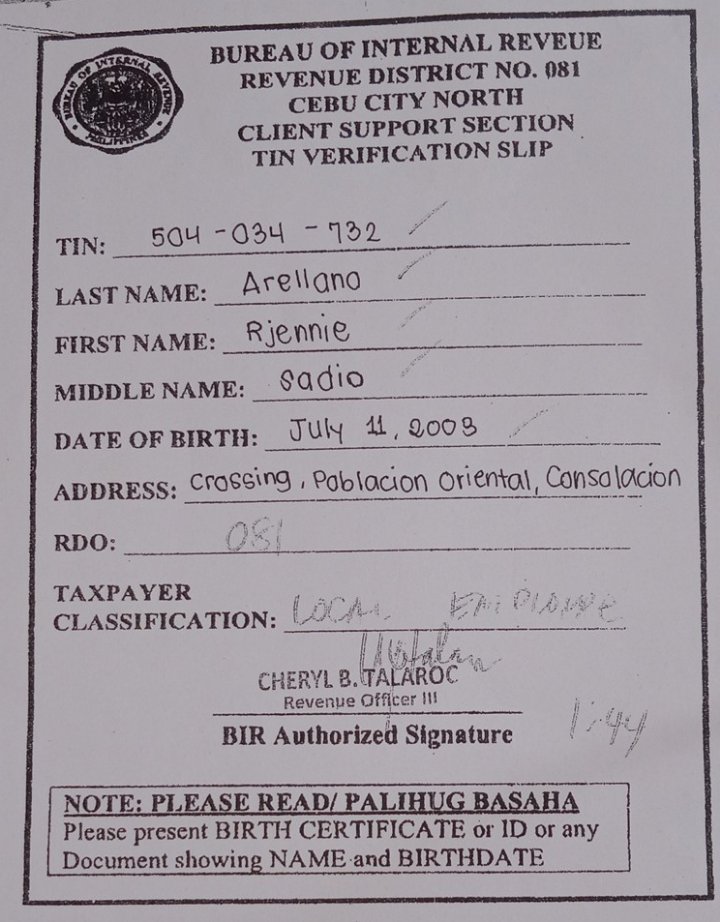 BUREAU OF INTERNAL REVENUE
PHILIPPINES
BUREAU OF INTERNAL REVEUE
REVENUE DISTRICT NO. 081
CEBU CITY NORTH
CLIENT SUPPORT SECTION
TIN VERIFICATION SLIP
TIN: 504-034-732
LAST NAME: Arellano
FIRST NAME: Rjennie
MIDDLE NAME: Sadio
DATE OF BIRTH: July 11, 2003
ADDRESS: Crossing, Poblacion Oriental, Consolacion
RDO: 081
TAXPAYER
CLASSIFICATION: LOCAL EMPLOYEE
CHERYL B. TALAROC
Revenue Officer III
BIR Authorized Signature
1:44
NOTE: PLEASE READ/ PALIHUG BASAHA
Please present BIRTH CERTIFICATE or ID or any
Document showing NAME and BIRTHDATE